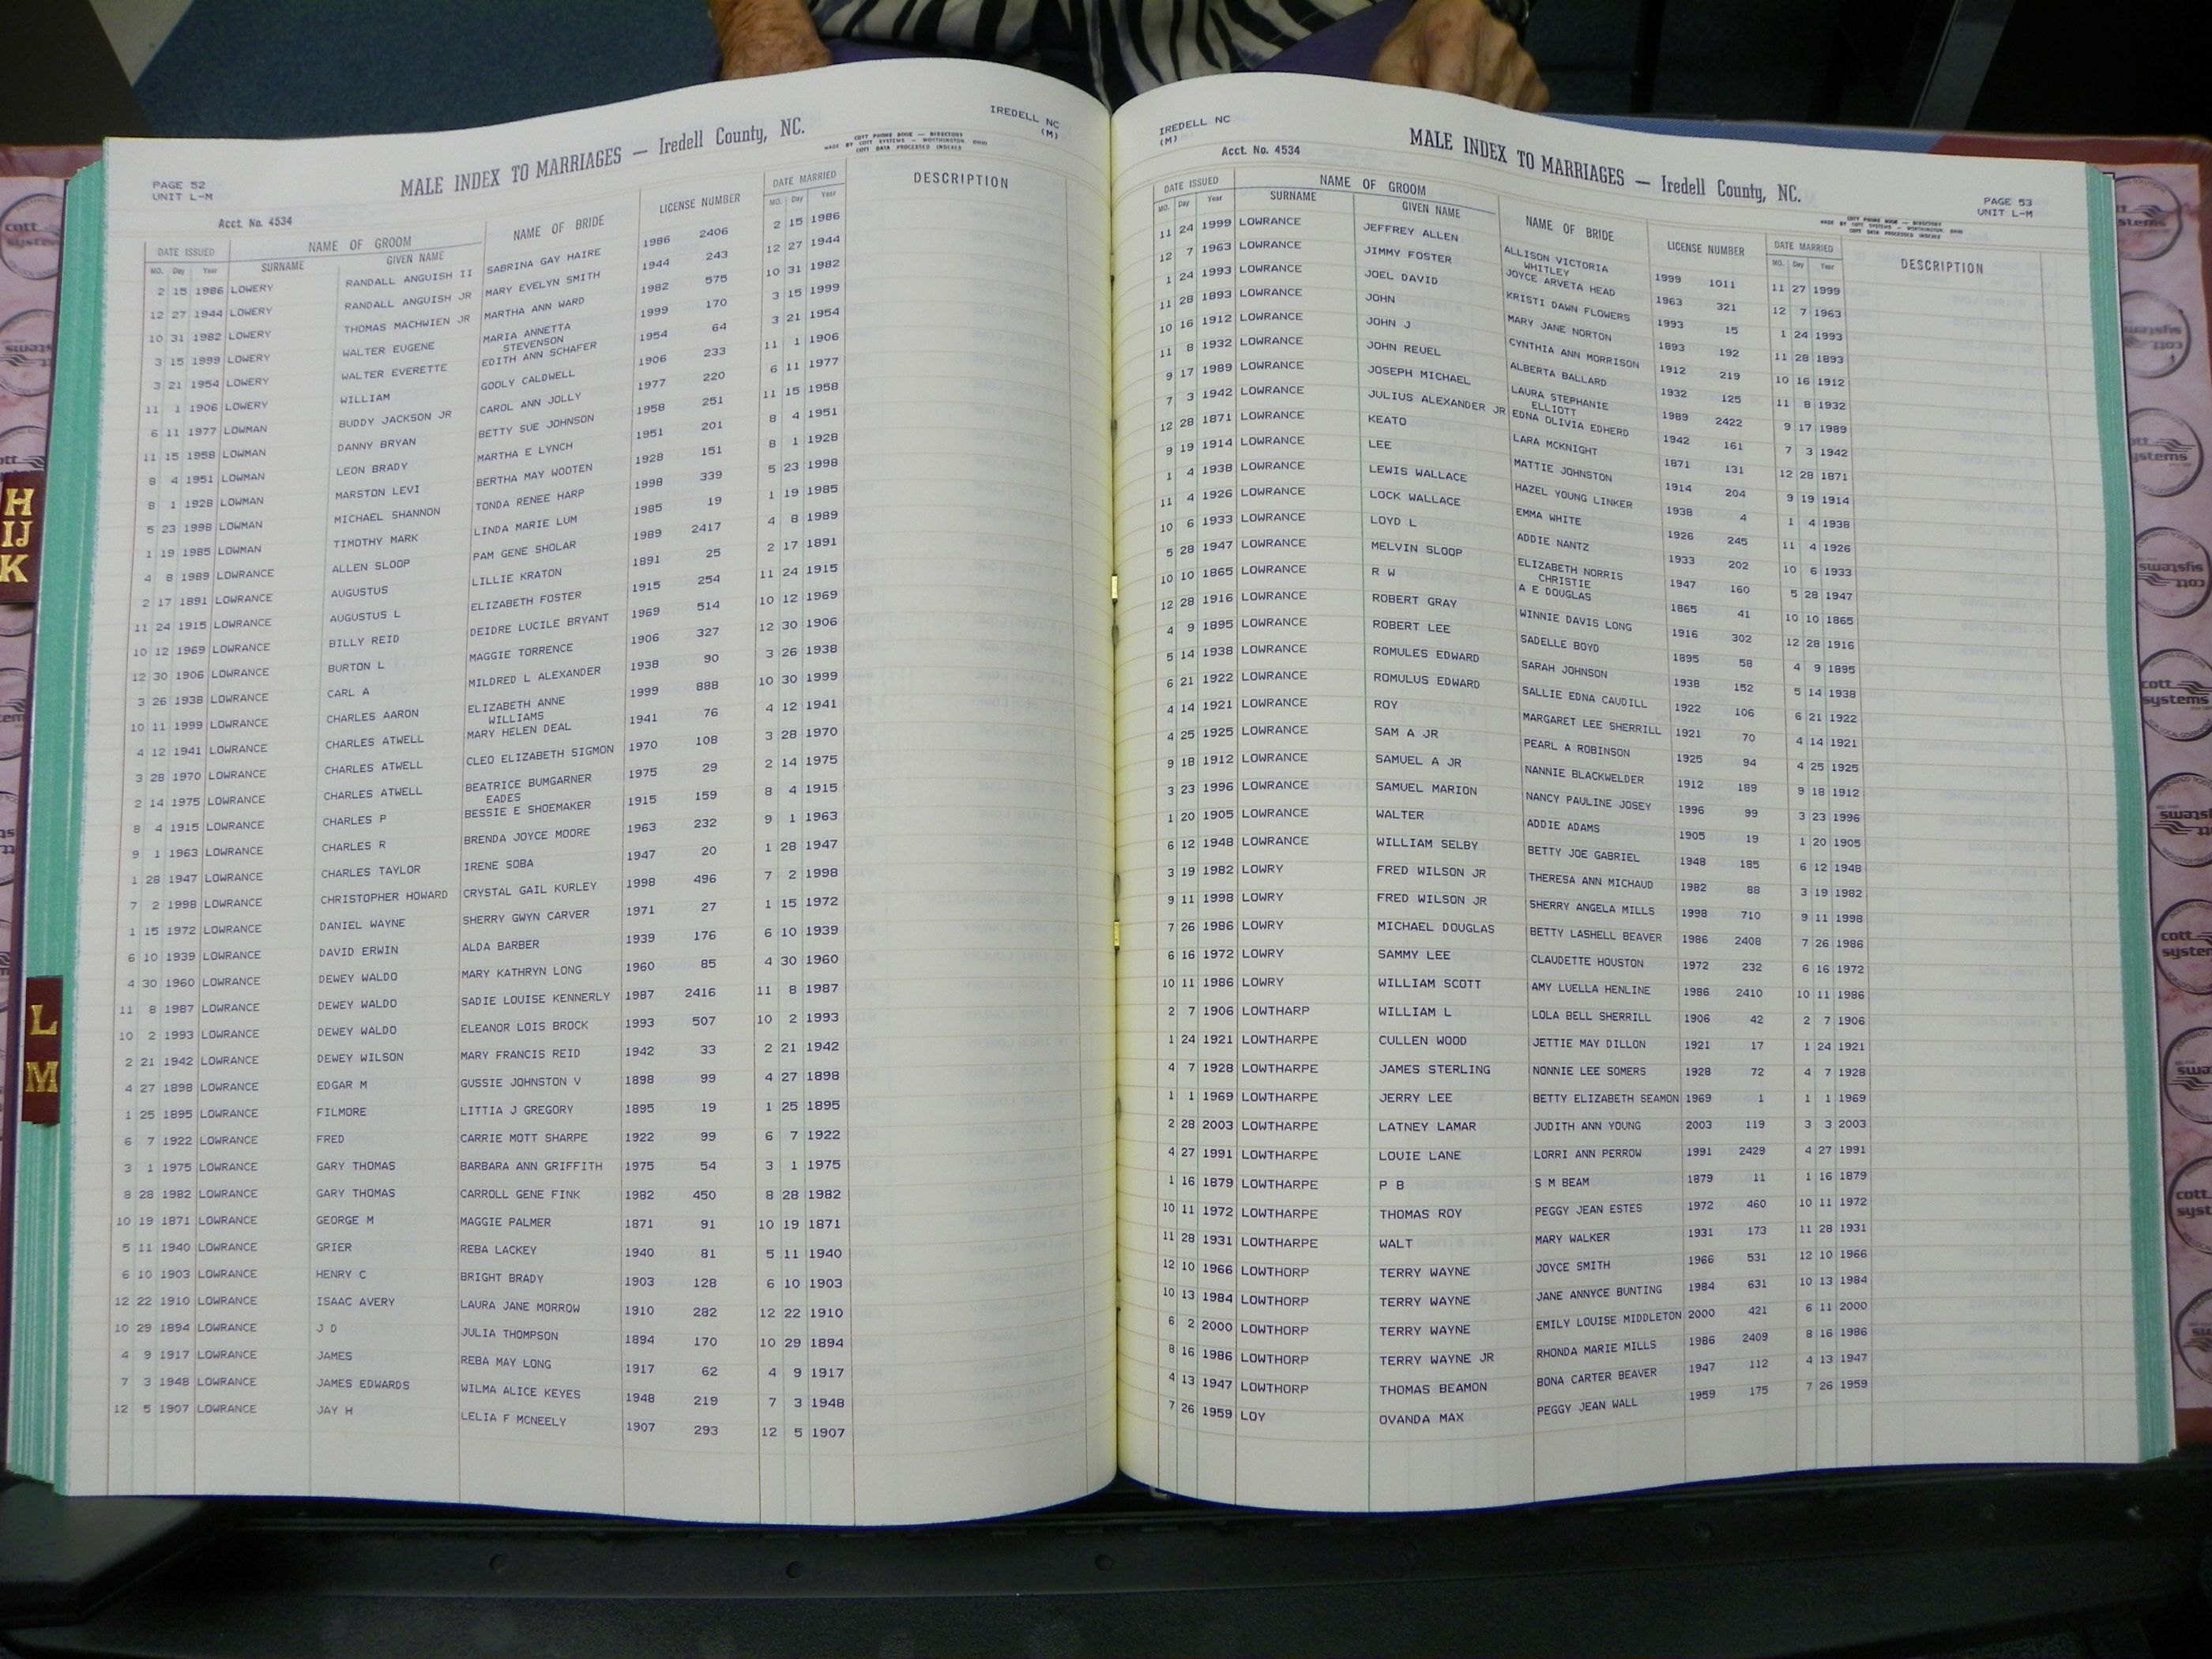 IREDELL NC
(M)
MALE INDEX TO MARRIAGES — Iredell County, NC.
COTT PHONE BOOK — DIRECTORY
MADE BY COTT SYSTEMS — WORTHINGTON OHIO
COTT DATA PROCESSED INDEXES
PAGE 52
UNIT L-M
Acct. No. 4534
DATE ISSUED NAME OF GROOM NAME OF BRIDE LICENSE NUMBER DATE MARRIED DESCRIPTION
MO. Day Year SURNAME GIVEN NAME MO. Day Year
2 15 1986 LOWERY RANDALL ANGUISH II SABRINA GAY HAIRE 1986 2406 2 15 1986
12 27 1944 LOWERY RANDALL ANGUISH JR MARY EVELYN SMITH 1944 243 12 27 1944
10 31 1982 LOWERY THOMAS MACHWIEN JR MARTHA ANN WARD 1982 575 10 31 1982
3 15 1999 LOWERY WALTER EUGENE MARIA ANNETTA 1999 170 3 15 1999
STEVENSON
3 21 1954 LOWERY WALTER EVERETTE EDITH ANN SCHAFER 1954 64 3 21 1954
11 1 1906 LOWERY WILLIAM GOOLY CALDWELL 1906 233 11 1 1906
6 11 1977 LOWMAN BUDDY JACKSON JR CAROL ANN JOLLY 1977 220 6 11 1977
11 15 1958 LOWMAN DANNY BRYAN BETTY SUE JOHNSON 1958 251 11 15 1958
8 4 1951 LOWMAN LEON BRADY MARTHA E LYNCH 1951 201 8 4 1951
8 1 1928 LOWMAN MARSTON LEVI BERTHA MAY WOOTEN 1928 151 8 1 1928
5 23 1998 LOWMAN MICHAEL SHANNON TONDA RENEE HARP 1998 339 5 23 1998
1 19 1985 LOWMAN TIMOTHY MARK LINDA MARIE LUM 1985 19 1 19 1985
4 8 1989 LOWRANCE ALLEN SLOOP PAM GENE SHOLAR 1989 2417 4 8 1989
2 17 1891 LOWRANCE AUGUSTUS LILLIE KRATON 1891 25 2 17 1891
11 24 1915 LOWRANCE AUGUSTUS L ELIZABETH FOSTER 1915 254 11 24 1915
10 12 1969 LOWRANCE BILLY REID DEIDRE LUCILE BRYANT 1969 514 10 12 1969
12 30 1906 LOWRANCE BURTON L MAGGIE TORRENCE 1906 327 12 30 1906
3 26 1938 LOWRANCE CARL A MILDRED L ALEXANDER 1938 90 3 26 1938
10 11 1999 LOWRANCE CHARLES AARON ELIZABETH ANNE 1999 888 10 30 1999
WILLIAMS
4 12 1941 LOWRANCE CHARLES ATWELL MARY HELEN DEAL 1941 76 4 12 1941
3 28 1970 LOWRANCE CHARLES ATWELL CLEO ELIZABETH SIGMON 1970 108 3 28 1970
2 14 1975 LOWRANCE CHARLES ATWELL BEATRICE BUMGARNER 1975 29 2 14 1975
EADES
8 4 1915 LOWRANCE CHARLES P BESSIE E SHOEMAKER 1915 159 8 4 1915
9 1 1963 LOWRANCE CHARLES R BRENDA JOYCE MOORE 1963 232 9 1 1963
1 28 1947 LOWRANCE CHARLES TAYLOR IRENE SOBA 1947 20 1 28 1947
7 2 1998 LOWRANCE CHRISTOPHER HOWARD CRYSTAL GAIL KURLEY 1998 496 7 2 1998
1 15 1972 LOWRANCE DANIEL WAYNE SHERRY GWYN CARVER 1971 27 1 15 1972
6 10 1939 LOWRANCE DAVID ERWIN ALDA BARBER 1939 176 6 10 1939
4 30 1960 LOWRANCE DEWEY WALDO MARY KATHRYN LONG 1960 85 4 30 1960
11 8 1987 LOWRANCE DEWEY WALDO SADIE LOUISE KENNERLY 1987 2416 11 8 1987
10 2 1993 LOWRANCE DEWEY WALDO ELEANOR LOIS BROCK 1993 507 10 2 1993
2 21 1942 LOWRANCE DEWEY WILSON MARY FRANCIS REID 1942 33 2 21 1942
4 27 1898 LOWRANCE EDGAR M GUSSIE JOHNSTON V 1898 99 4 27 1898
1 25 1895 LOWRANCE FILMORE LITTIA J GREGORY 1895 19 1 25 1895
6 7 1922 LOWRANCE FRED CARRIE MOTT SHARPE 1922 99 6 7 1922
3 1 1975 LOWRANCE GARY THOMAS BARBARA ANN GRIFFITH 1975 54 3 1 1975
8 28 1982 LOWRANCE GARY THOMAS CARROLL GENE FINK 1982 450 8 28 1982
10 19 1871 LOWRANCE GEORGE M MAGGIE PALMER 1871 91 10 19 1871
5 11 1940 LOWRANCE GRIER REBA LACKEY 1940 81 5 11 1940
6 10 1903 LOWRANCE HENRY C BRIGHT BRADY 1903 128 6 10 1903
12 22 1910 LOWRANCE ISAAC AVERY LAURA JANE MORROW 1910 282 12 22 1910
10 29 1894 LOWRANCE J D JULIA THOMPSON 1894 170 10 29 1894
4 9 1917 LOWRANCE JAMES REBA MAY LONG 1917 62 4 9 1917
7 3 1948 LOWRANCE JAMES EDWARDS WILMA ALICE KEYES 1948 219 7 3 1948
12 5 1907 LOWRANCE JAY H LELIA F MCNEELY 1907 293 12 5 1907
IREDELL NC
(M)
Acct. No. 4534
MALE INDEX TO MARRIAGES — Iredell County, NC.
MADE BY COTT SYSTEMS — WORTHINGTON OHIO
COTT DATA PROCESSED INDEXES
PAGE 53
UNIT L-M
DATE ISSUED NAME OF GROOM NAME OF BRIDE LICENSE NUMBER DATE MARRIED DESCRIPTION
MO. Day Year SURNAME GIVEN NAME MO. Day Year
11 24 1999 LOWRANCE JEFFREY ALLEN ALLISON VICTORIA 1999 1011 11 27 1999
WHITLEY
12 7 1963 LOWRANCE JIMMY FOSTER JOYCE ARVETA HEAD 1963 321 12 7 1963
1 24 1993 LOWRANCE JOEL DAVID KRISTI DAWN FLOWERS 1993 15 1 24 1993
11 28 1893 LOWRANCE JOHN MARY JANE NORTON 1893 192 11 28 1893
10 16 1912 LOWRANCE JOHN J CYNTHIA ANN MORRISON 1912 219 10 16 1912
11 8 1932 LOWRANCE JOHN REUEL ALBERTA BALLARD 1932 125 11 8 1932
9 17 1989 LOWRANCE JOSEPH MICHAEL LAURA STEPHANIE 1989 2422 9 17 1989
ELLIOTT
7 3 1942 LOWRANCE JULIUS ALEXANDER JR EDNA OLIVIA EDHERD 1942 161 7 3 1942
12 28 1871 LOWRANCE KEATO LARA MCKNIGHT 1871 131 12 28 1871
9 19 1914 LOWRANCE LEE MATTIE JOHNSTON 1914 204 9 19 1914
1 4 1938 LOWRANCE LEWIS WALLACE HAZEL YOUNG LINKER 1938 4 1 4 1938
11 4 1926 LOWRANCE LOCK WALLACE EMMA WHITE 1926 245 11 4 1926
10 6 1933 LOWRANCE LOYD L ADDIE NANTZ 1933 202 10 6 1933
5 28 1947 LOWRANCE MELVIN SLOOP ELIZABETH NORRIS 1947 160 5 28 1947
CHRISTIE
10 10 1865 LOWRANCE R W A E DOUGLAS 1865 41 10 10 1865
12 28 1916 LOWRANCE ROBERT GRAY WINNIE DAVIS LONG 1916 302 12 28 1916
4 9 1895 LOWRANCE ROBERT LEE SADELLE BOYD 1895 58 4 9 1895
5 14 1938 LOWRANCE ROMULES EDWARD SARAH JOHNSON 1938 152 5 14 1938
6 21 1922 LOWRANCE ROMULUS EDWARD SALLIE EDNA CAUDILL 1922 106 6 21 1922
4 14 1921 LOWRANCE ROY MARGARET LEE SHERRILL 1921 70 4 14 1921
4 25 1925 LOWRANCE SAM A JR PEARL A ROBINSON 1925 94 4 25 1925
9 18 1912 LOWRANCE SAMUEL A JR NANNIE BLACKWELDER 1912 189 9 18 1912
3 23 1996 LOWRANCE SAMUEL MARION NANCY PAULINE JOSEY 1996 99 3 23 1996
1 20 1905 LOWRANCE WALTER ADDIE ADAMS 1905 19 1 20 1905
6 12 1948 LOWRANCE WILLIAM SELBY BETTY JOE GABRIEL 1948 185 6 12 1948
3 19 1982 LOWRY FRED WILSON JR THERESA ANN MICHAUD 1982 88 3 19 1982
9 11 1998 LOWRY FRED WILSON JR SHERRY ANGELA MILLS 1998 710 9 11 1998
7 26 1986 LOWRY MICHAEL DOUGLAS BETTY LASHELL BEAVER 1986 2408 7 26 1986
6 16 1972 LOWRY SAMMY LEE CLAUDETTE HOUSTON 1972 232 6 16 1972
10 11 1986 LOWRY WILLIAM SCOTT AMY LUELLA HENLINE 1986 2410 10 11 1986
2 7 1906 LOWTHARP WILLIAM L LOLA BELL SHERRILL 1906 42 2 7 1906
1 24 1921 LOWTHARPE CULLEN WOOD JETTIE MAY DILLON 1921 17 1 24 1921
4 7 1928 LOWTHARPE JAMES STERLING NONNIE LEE SOMERS 1928 72 4 7 1928
1 1 1969 LOWTHARPE JERRY LEE BETTY ELIZABETH SEAMON 1969 1 1 1 1969
2 28 2003 LOWTHARPE LATNEY LAMAR JUDITH ANN YOUNG 2003 119 3 3 2003
4 27 1991 LOWTHARPE LOUIE LANE LORRI ANN PERROW 1991 2429 4 27 1991
1 16 1879 LOWTHARPE P B S M BEAM 1879 11 1 16 1879
10 11 1972 LOWTHARPE THOMAS ROY PEGGY JEAN ESTES 1972 460 10 11 1972
11 28 1931 LOWTHARPE WALT MARY WALKER 1931 173 11 28 1931
12 10 1966 LOWTHORP TERRY WAYNE JOYCE SMITH 1966 531 12 10 1966
10 13 1984 LOWTHORP TERRY WAYNE JANE ANNYCE BUNTING 1984 631 10 13 1984
6 2 2000 LOWTHORP TERRY WAYNE EMILY LOUISE MIDDLETON 2000 421 6 11 2000
8 16 1986 LOWTHORP TERRY WAYNE JR RHONDA MARIE MILLS 1986 2409 8 16 1986
4 13 1947 LOWTHORP THOMAS BEAMON BONA CARTER BEAVER 1947 112 4 13 1947
7 26 1959 LOY OVANDA MAX PEGGY JEAN WALL 1959 175 7 26 1959
H
IJ
K
L
M
cott systems